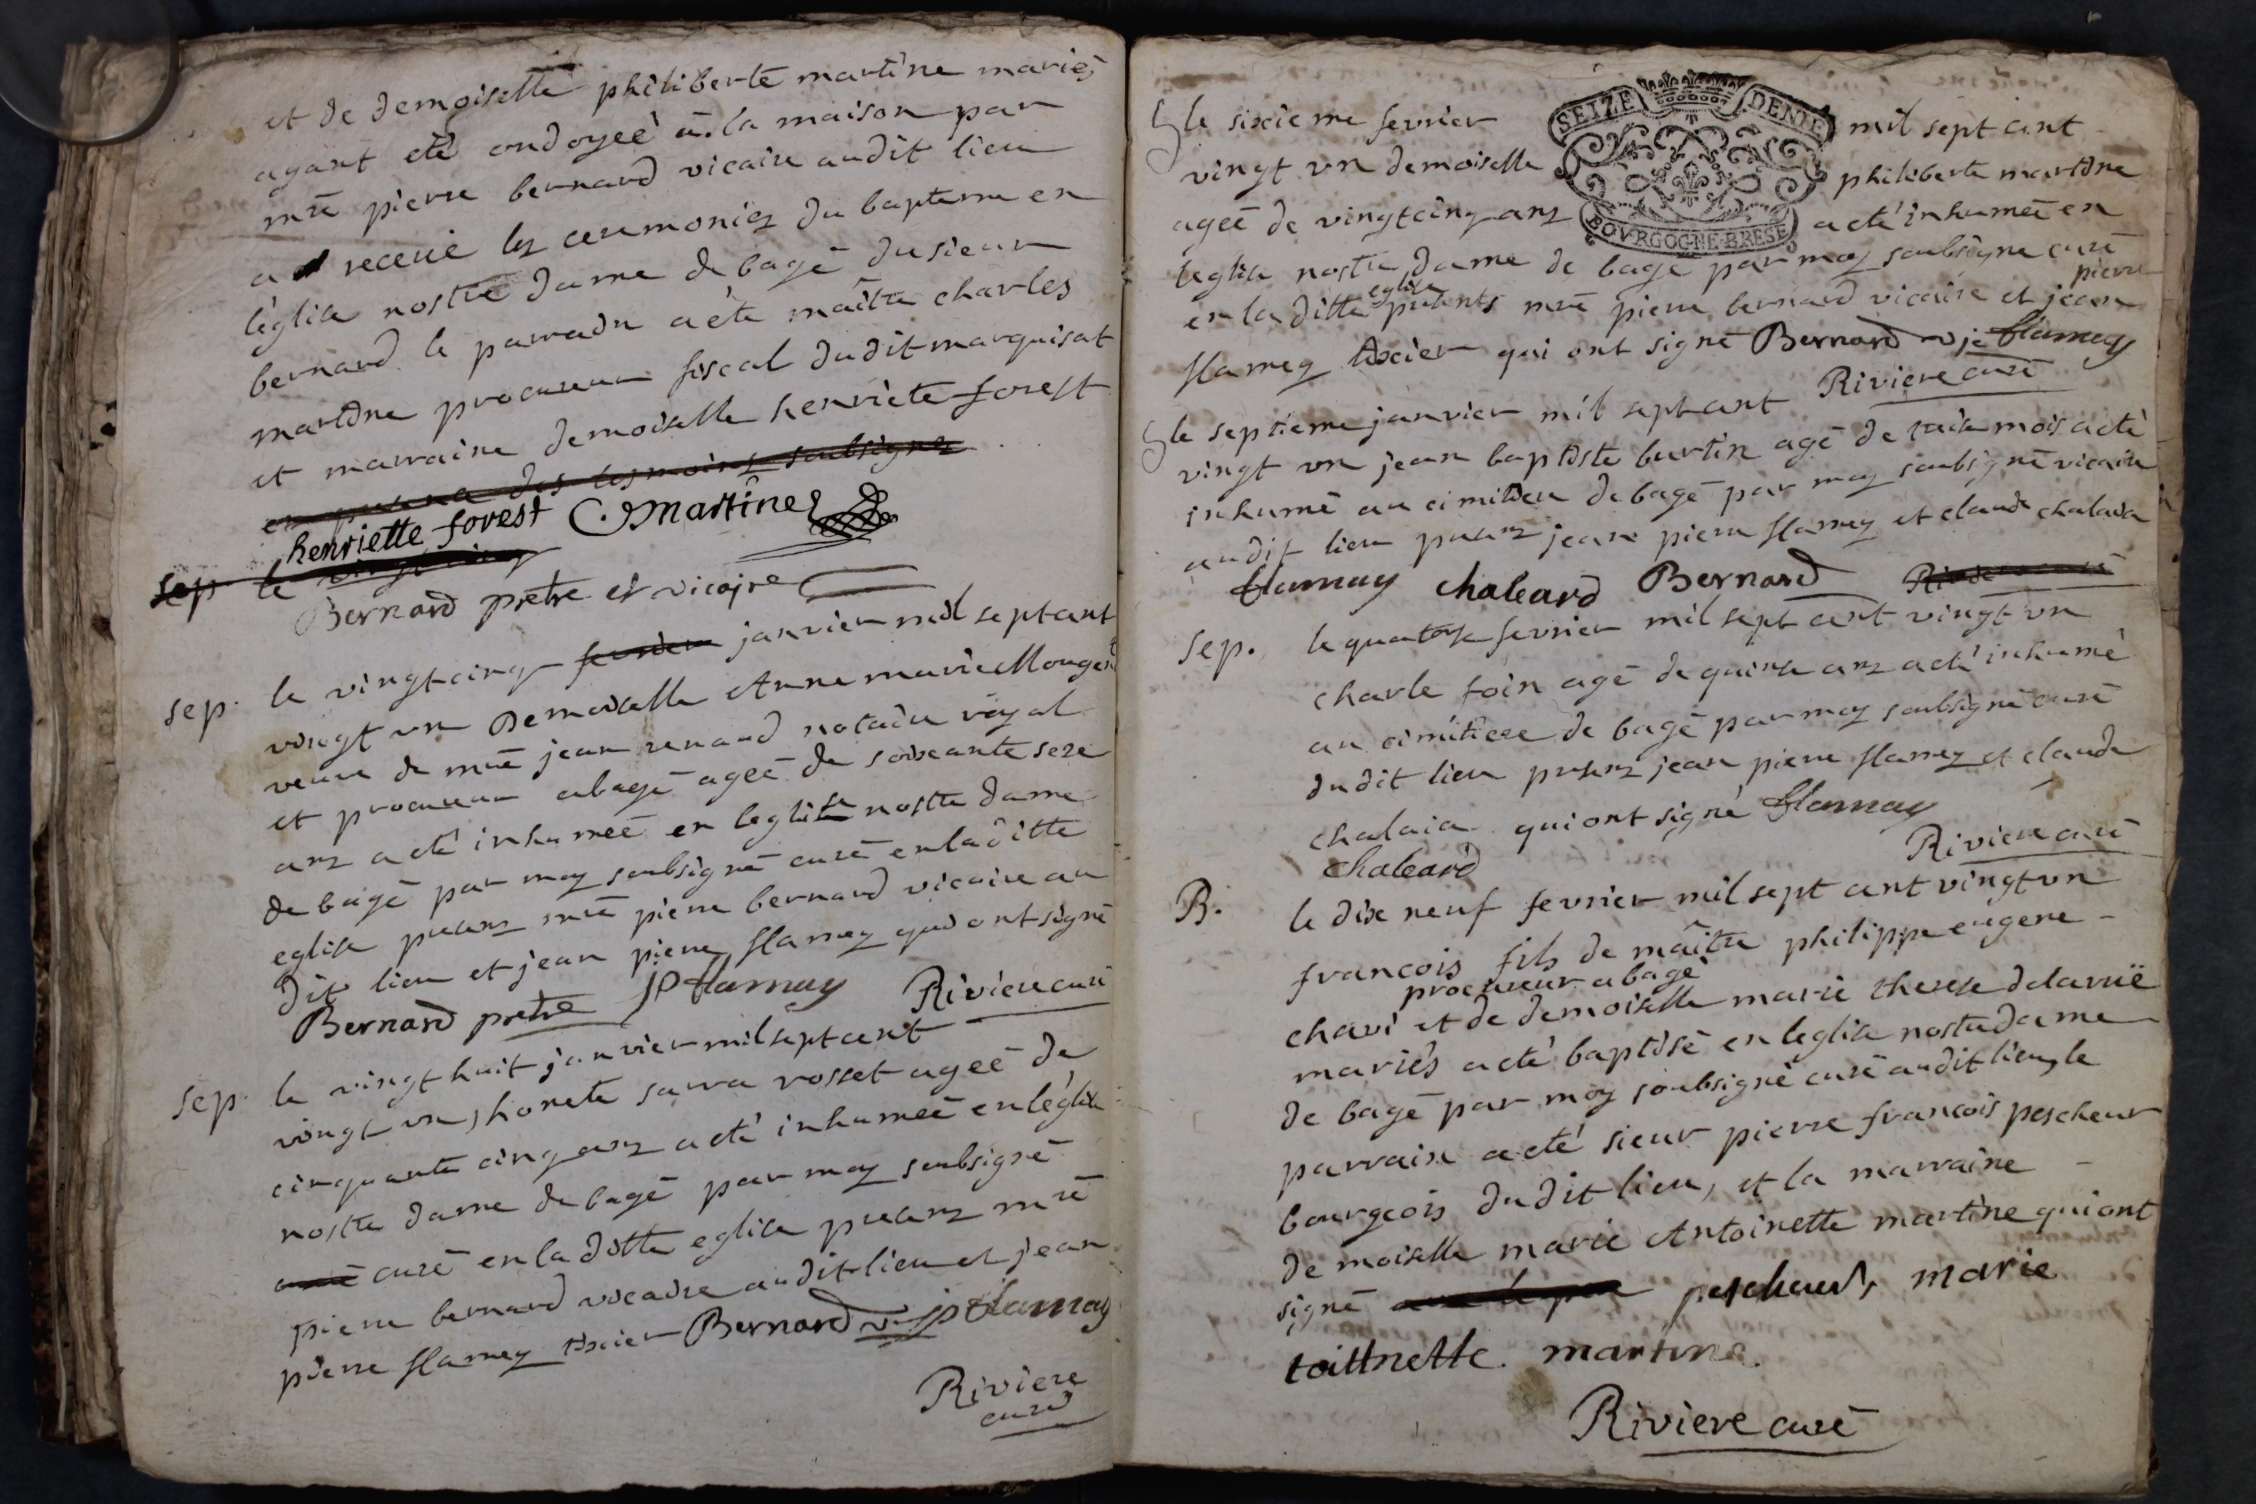 et de demoiselle philiberte martine mariés
ayant eté ondoyeé a la maison par
mre pierre bernard vicaire audit lieu
a receue les ceremonies du bapteme en
léglise nostre dame de bagé du sieur
bernard le parrain a été maître charles
martine procureur fiscal dudit marquisat
et marraine demoiselle henriete forest
des tesmoins soubsignes
henriette forest C Martine
sep. le vingt cinq
Bernard pretre et vicaire
sep. le vingtcinq fevrier janvier mil sept cent
vingt un Demoiselle Anne marie Monge
veuve de mre jean renaud notaire royal
et procureur a bagé ageé de soixante seze
ans a eté inhumeé en leglise nostre dame
de bagé par moy soubsigné curé en la ditte
eglise preans mre pierre bernard vicaire au
dit lieu et jean pierre flamey qui ont signé
Bernard pretre JP flamay Riviere curé
sep. le vingt huit janvier mil sept cent
vingt un, honete sarra rosset ageé de
cinquante cinq ans a eté inhumeé en léglise
nostre dame de bagé par moy soubsigné
curé en la ditte eglise preans mre
pierre bernard vicaire audit lieu et jean
pierre flamey tixier Bernard v. jp flamay
Riviere
curé
SEIZE DENIE
BOVRGOGNE·BRESE
S le sixieme fevrier mil sept cent
vingt un demoiselle philiberte martine
ageé de vingtcinq ans a eté inhumeé en
leglise nostre dame de bagé par moy soubsigné curé
en la ditte eglise presents mre pierre bernard vicaire et jean pierre
flamey tixier qui ont signé Bernard v. flamay
Riviere curé
S le septieme janvier mil sept cent
vingt un jean baptiste burtin agé de mois a eté
inhumé au cimitiere de bagé par moy soubsigné vicaire
audit lieu preans jean pierre flamey et claude chalaia
flamay chaleard Bernard
sep. le quatorze fevrier mil sept cent vingt un
charle foin agé de quinze ans a eté inhumé
au cimitiere de bagé par moy soubsigné curé
du dit lieu preans jean pierre flamey et claude
chalaia qui ont signé flamay
chaleard Riviere curé
B. le dix neuf fevrier mil sept cent vingt un
francois fils de maître philippe eugene
chavi procureur a bagé et de demoiselle marie therese delaruë
mariés a eté baptisé en leglise nostre dame
de bagé par moy soubsigné curé audit lieu, le
parrain a eté sieur pierre francois pescheur
bourgeois du dit lieu, et la marraine
demoiselle marie Antoinette martine qui ont
signé pescheur, marie
toittnette. martine.
Riviere curé